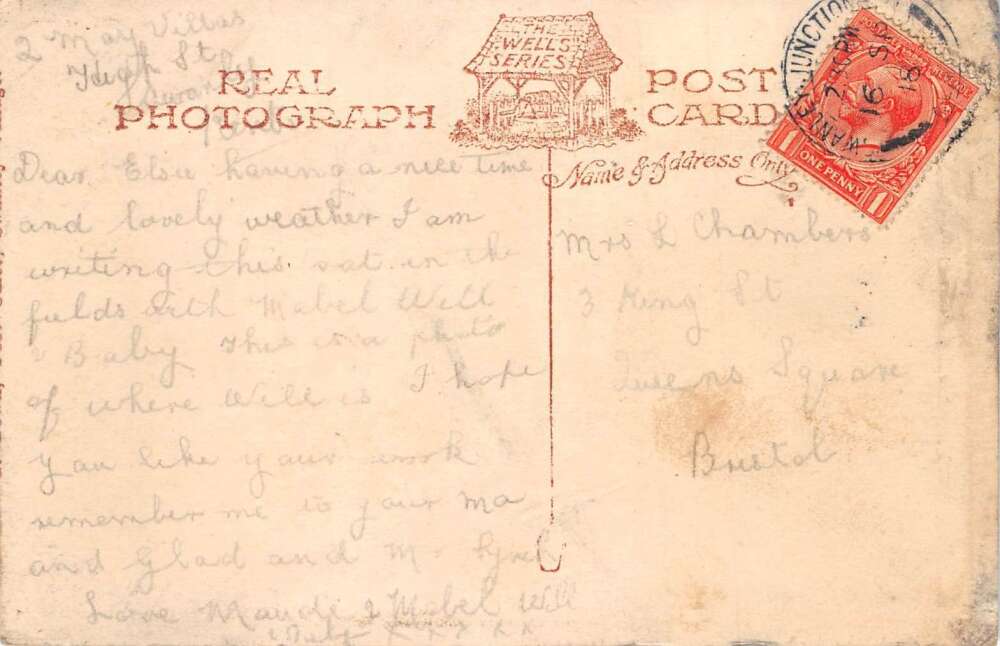 2 May Villas
High St
Swanley
Kent
THE
WELLS
SERIES
REAL
PHOTOGRAPH
POST
CARD
Name & Address Only
SWANLEY JUNCTION
2 30 PM
16 SP
18
ONE PENNY
1 1
Dear Elsie having a nice time
and lovely weather I am
writing this sat in the
fields with Mabel Will
& Baby this is a photo
of where Will is I hope
you like your work
remember me to your Ma
and Glad and M
Love Maude & Mabel Will
x x x x x
Mrs L Chambers
3 King St
Queens Square
Bristol